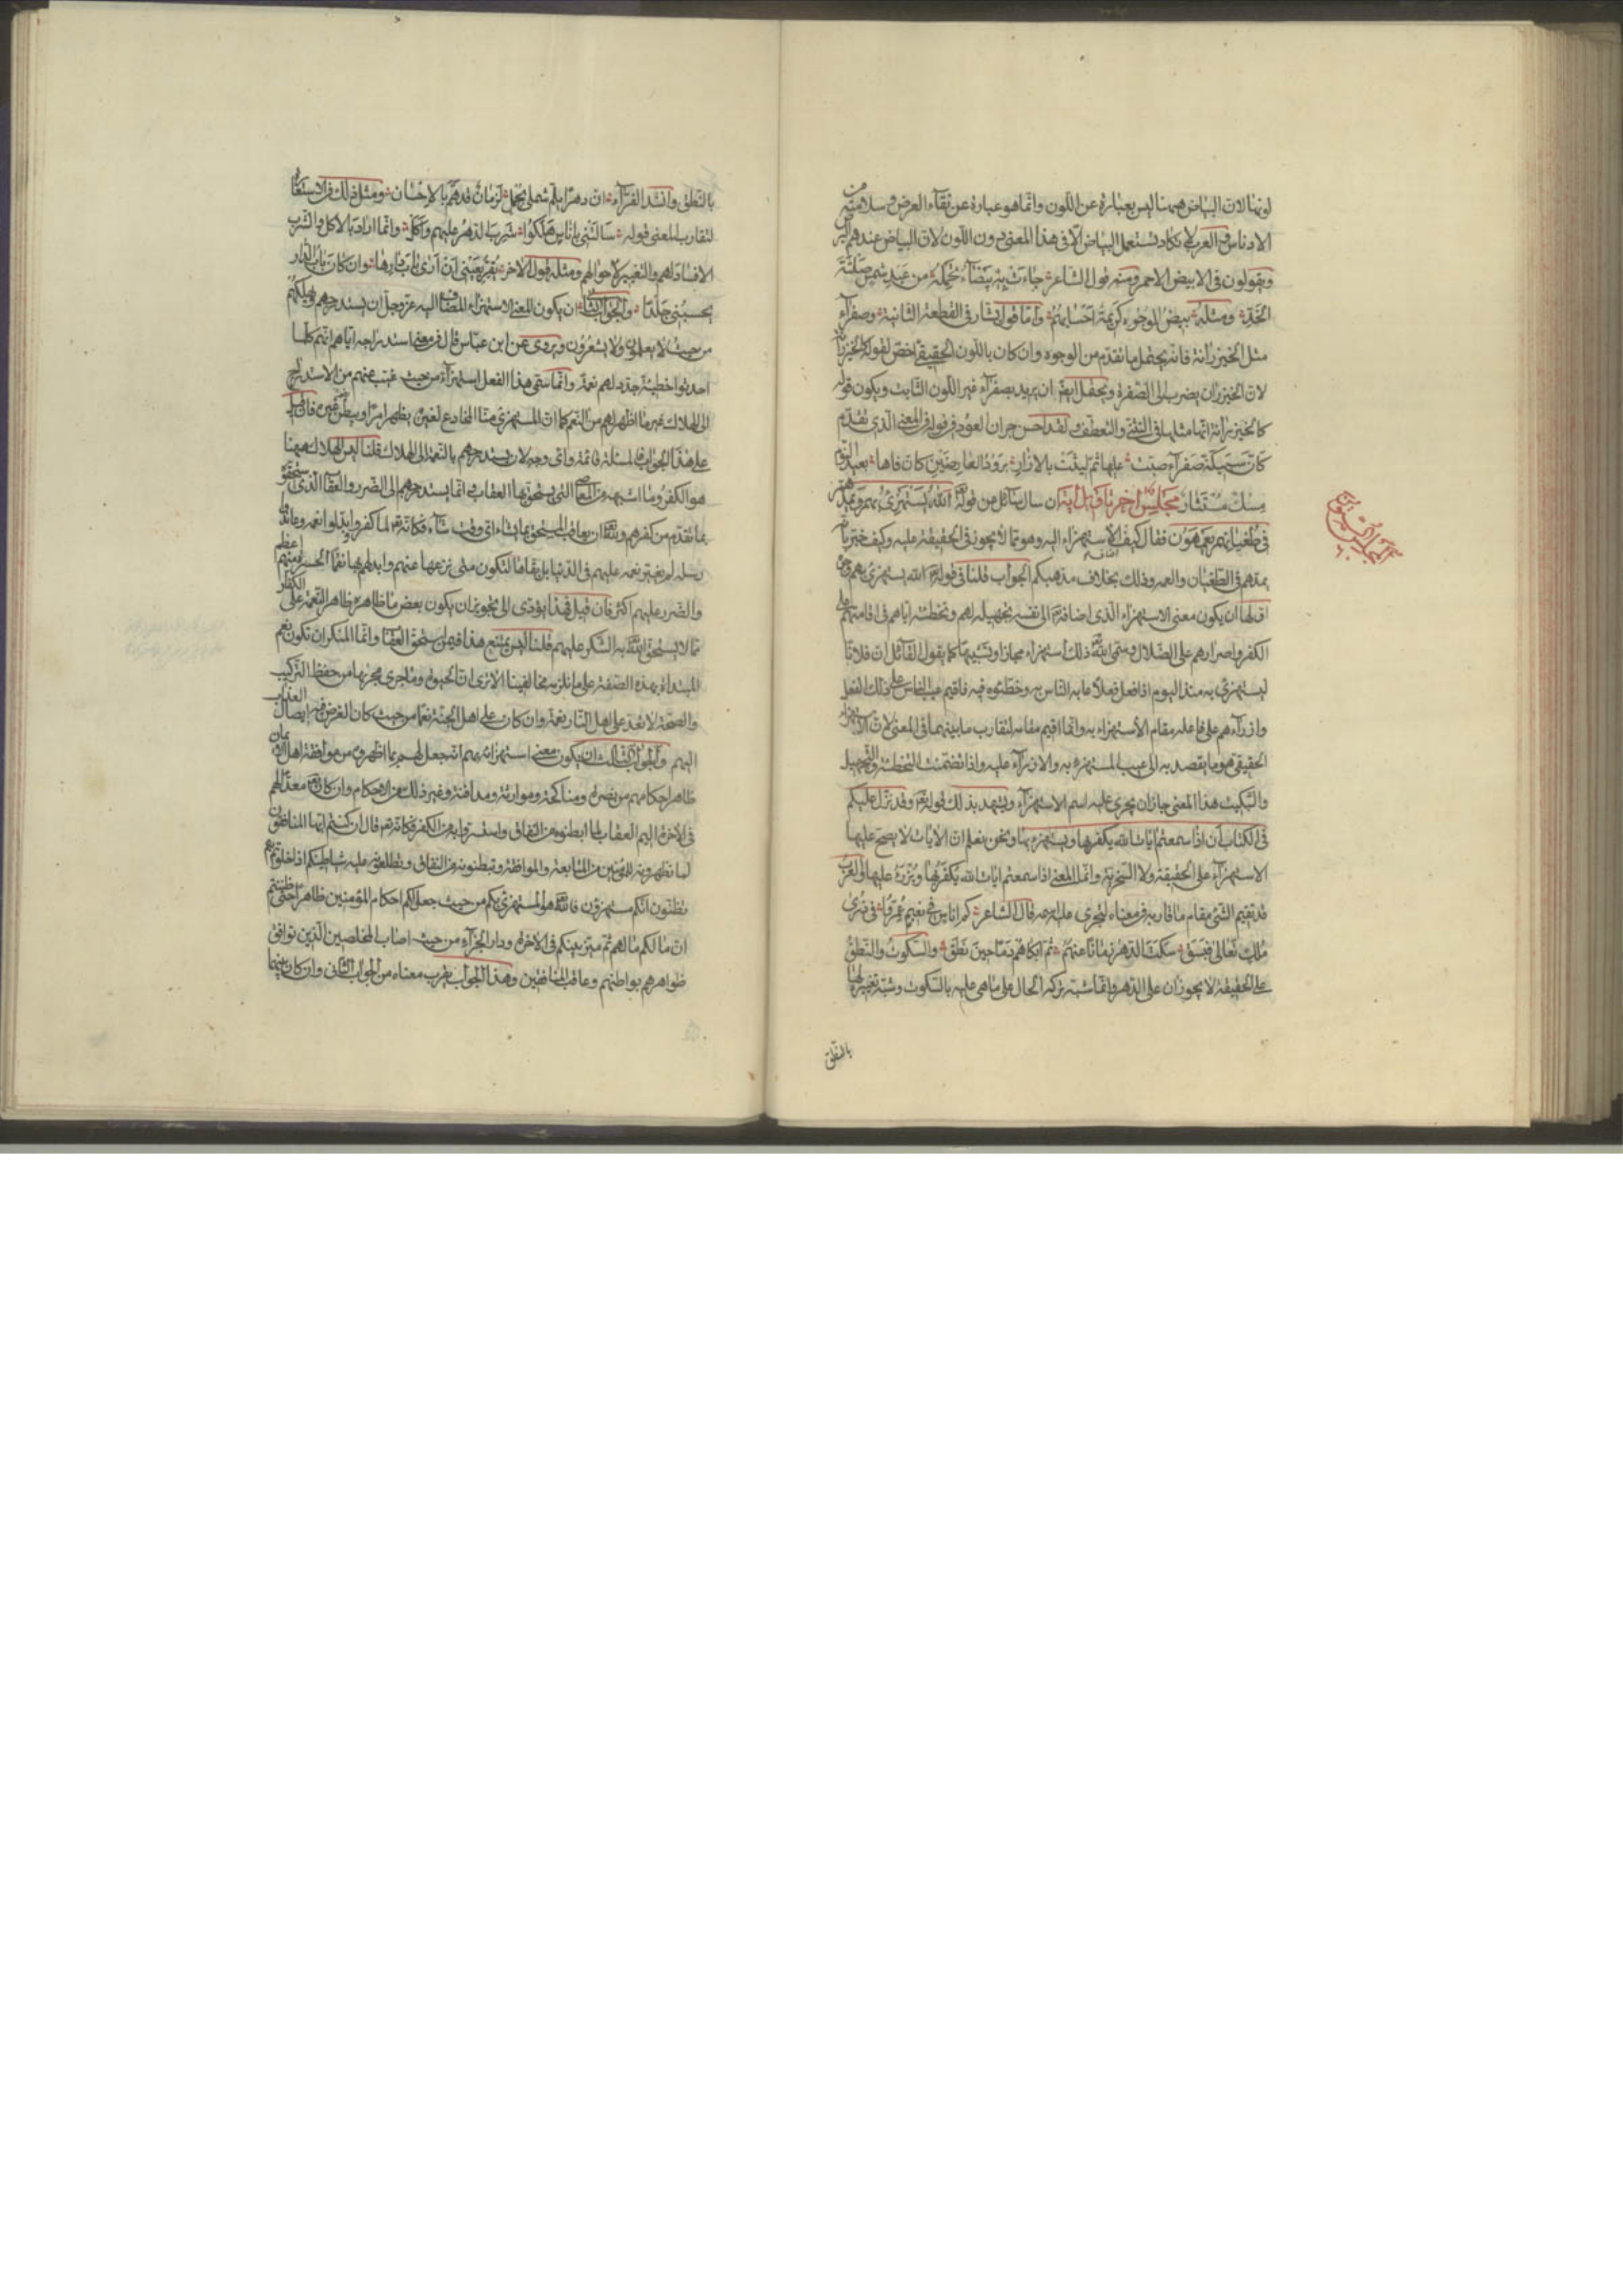 لونها لان البياض ههنا ليس بعبارة عن اللون وانما هو عبارة عن نقاء العرض وسلامته من
الادناس والعرب لا تكاد تستعمل البياض الا في هذا المعنى دون اللون لان البياض عندهم البرص
ويقولون في الابيض الاحمر ومنه قول الشاعر جاءت به بيضاء تحمله من عبد شمس صلتة
الخد ومثله بيض الوجوه كريمة احسابهم واما قول بشار في القطعة الثانية وصفراء
مثل الخيزرانة فانه يحتمل ما تقدم من الوجوه وان كان باللون الحقيقي اخص لقوله كالخيزرانة
لان الخيزران يضرب الى الصفرة ويحتمل ايضا ان يريد بصفراء غير اللون الثابت ويكون قوله
كالخيزرانة انها مثلها في التثني والتعطف ولقد احسن جران العود في قوله في المعنى الذي تقدم
كان سبيكة صفراء صبت عليها ثم ليثت بالازار برود العارضين كان فاها بعيد النوم
مسك مستثار مجلس اخر تاويل اية ان سال سائل عن قوله تعالى الله يستهزئ بهم ويمدهم
في طغيانهم يعمهون فقال كيف اضاف الاستهزاء اليه وهو مما لا يجوز في الحقيقة عليه وكيف خبر بانه
يمدهم في الطغيان والعمه وذلك بخلاف مذهبكم الجواب قلنا في قوله تعالى الله يستهزئ بهم وجوه
اولها ان يكون معنى الاستهزاء الذي اضافه تعالى الى نفسه تجهيله لهم وتخطئته اياهم في اقامتهم على
الكفر واصرارهم على الضلال وسمى الله تعالى ذلك استهزاء مجازا وتشبيها كما يقول القائل ان فلانا
ليستهزئ به منذ اليوم اذا فعل فعلا عابه الناس به وخطئوه فيه فاقيم عيب الناس على ذلك الفعل
وازراءهم على فاعله مقام الاستهزاء به وانما اقيم مقامه لتقارب ما بينهما في المعنى لان الاستهزاء
الحقيقي هو ما يقصد به الى عيب المستهزء به والازراء عليه واذا تضمنت التخطئة والتجهيل
والتبكيت هذا المعنى جاز ان يجري عليه اسم الاستهزاء ويشهد بذلك قوله تعالى وقد نزل عليكم
في الكتاب ان اذا سمعتم ايات الله يكفر بها ويستهزء بها ونحن نعلم ان الايات لا يصح عليها
الاستهزاء على الحقيقة ولا السخرية وانما المعنى اذا سمعتم ايات الله يكفر بها ويزرء عليها والعرب
قد تقيم الشئ مقام ما قاربه في معناه لتجري عليه اسمه قال الشاعر كم اناس في نعيم عمروا في ذرى
ملك تعالى فبسق سكت الدهر زمانا عنهم ثم ابكاهم دما حين نطق والسكوت والنطق
على الحقيقة لا يجوزان على الدهر وانما شبه تركه الحال على ما هي عليه بالسكوت وشبه تغييره لها
بالنطق
بالنطق وانشد الفراء ان دهرا يلم شملي بجمل لزمان قد هم بالاحسان ومثل ذلك في الاستعارة
لتقارب المعنى قوله سالتني باناس هلكوا شرب الدهر عليهم واكل وانما اراد بالاكل والشرب
الافساد لهم والتغيير لاحوالهم ومثله قول الاخر يقر بعيني ان ارى باب دارها وان كان باب الدار
يحسبني جلدا والجواب الثاني ان يكون المعنى الاستهزاء المضاف اليه عز وجل ان يستدرجهم ويهلكهم
من حيث لا يعلمون ولا يشعرون ويروى عن ابن عباس قال في معنى استدراجه اياهم انهم كلما
احدثوا خطيئة جدد لهم نعمة وانما سمى هذا الفعل استهزاء من حيث غيب عنهم من الاستدراج
الى الهلاك غير ما اظهر لهم من النعم كما ان المستهزئ منا المخادع لغيره يظهر امرا ويبطن غيره فان قيل
على هذا الجواب فالمسئلة قائمة واي وجه لان يستدرجهم بالنعمة الى الهلاك قلنا ليس الهلاك ههنا
هو الكفر وما اشبهه من المعاصي التي يستحق بها العقاب وانما يستدرجهم الى الضرر والعقاب الذي استحقوه
بما تقدم من كفرهم ولله تعالى ان يعاقب المستحق بما يشاء اي وقت شاء فكانه تعالى لما كفروا وبدلوا نعمه وعاندوا
رسله لم يغير نعمه عليهم في الدنيا بل بقاها لتكون متى نزعها عنهم وابدلهم بها نقما الحسرة منهم اعظم
والضرر عليهم اكثر فان قيل فهذا يؤدي الى تجويز ان يكون بعض ما ظاهره ظاهر النعمة على الكفار
مما لا يستحق الله تعالى به الشكر عليهم قلنا ليس يمتنع هذا فيمن استحق العقاب وانما المنكر ان تكون نعم
المبتدأة بهذه الصفة على ما نلزمه مخالفينا الا ترى ان الحيوة وما جرى مجراها من حفظ التركيب
والصحة لا تعد على اهل النار نعمة وان كان على اهل الجنة نعما من حيث كان الغرض فيه ايصال العذاب
اليهم والجواب الثالث ان يكون معنى استهزائه بهم انه جعل لهم بما اظهروه من موافقة اهل الايمان
ظاهر احكامهم من نصرة ومناكحة وموارثة ومدافنة وغير ذلك من الاحكام وان كان تعالى معدا لهم
في الاخرة اليم العقاب لما ابطنوه من النفاق واستسروا به من الكفر فكانه تعالى قال ان كنتم ايها المنافقون
بما تظهرونه للمؤمنين من المتابعة والموافقة وتبطنونه من النفاق وتطلعون عليه شياطينكم اذا خلوتم بهم
تظنون انكم مستهزؤن فالله تعالى هو المستهزئ بكم من حيث جعل لكم احكام المؤمنين ظاهرا حتى ظننتم
ان لكم ما لهم ثم ميز بينكم في الاخرة ودار الجزاء من حيث اصاب المخلصين الذين توافق
ظواهرهم بواطنهم وعاقب المنافقين وهذا الجواب يقرب معناه من الجواب الثاني وان كان بينهما